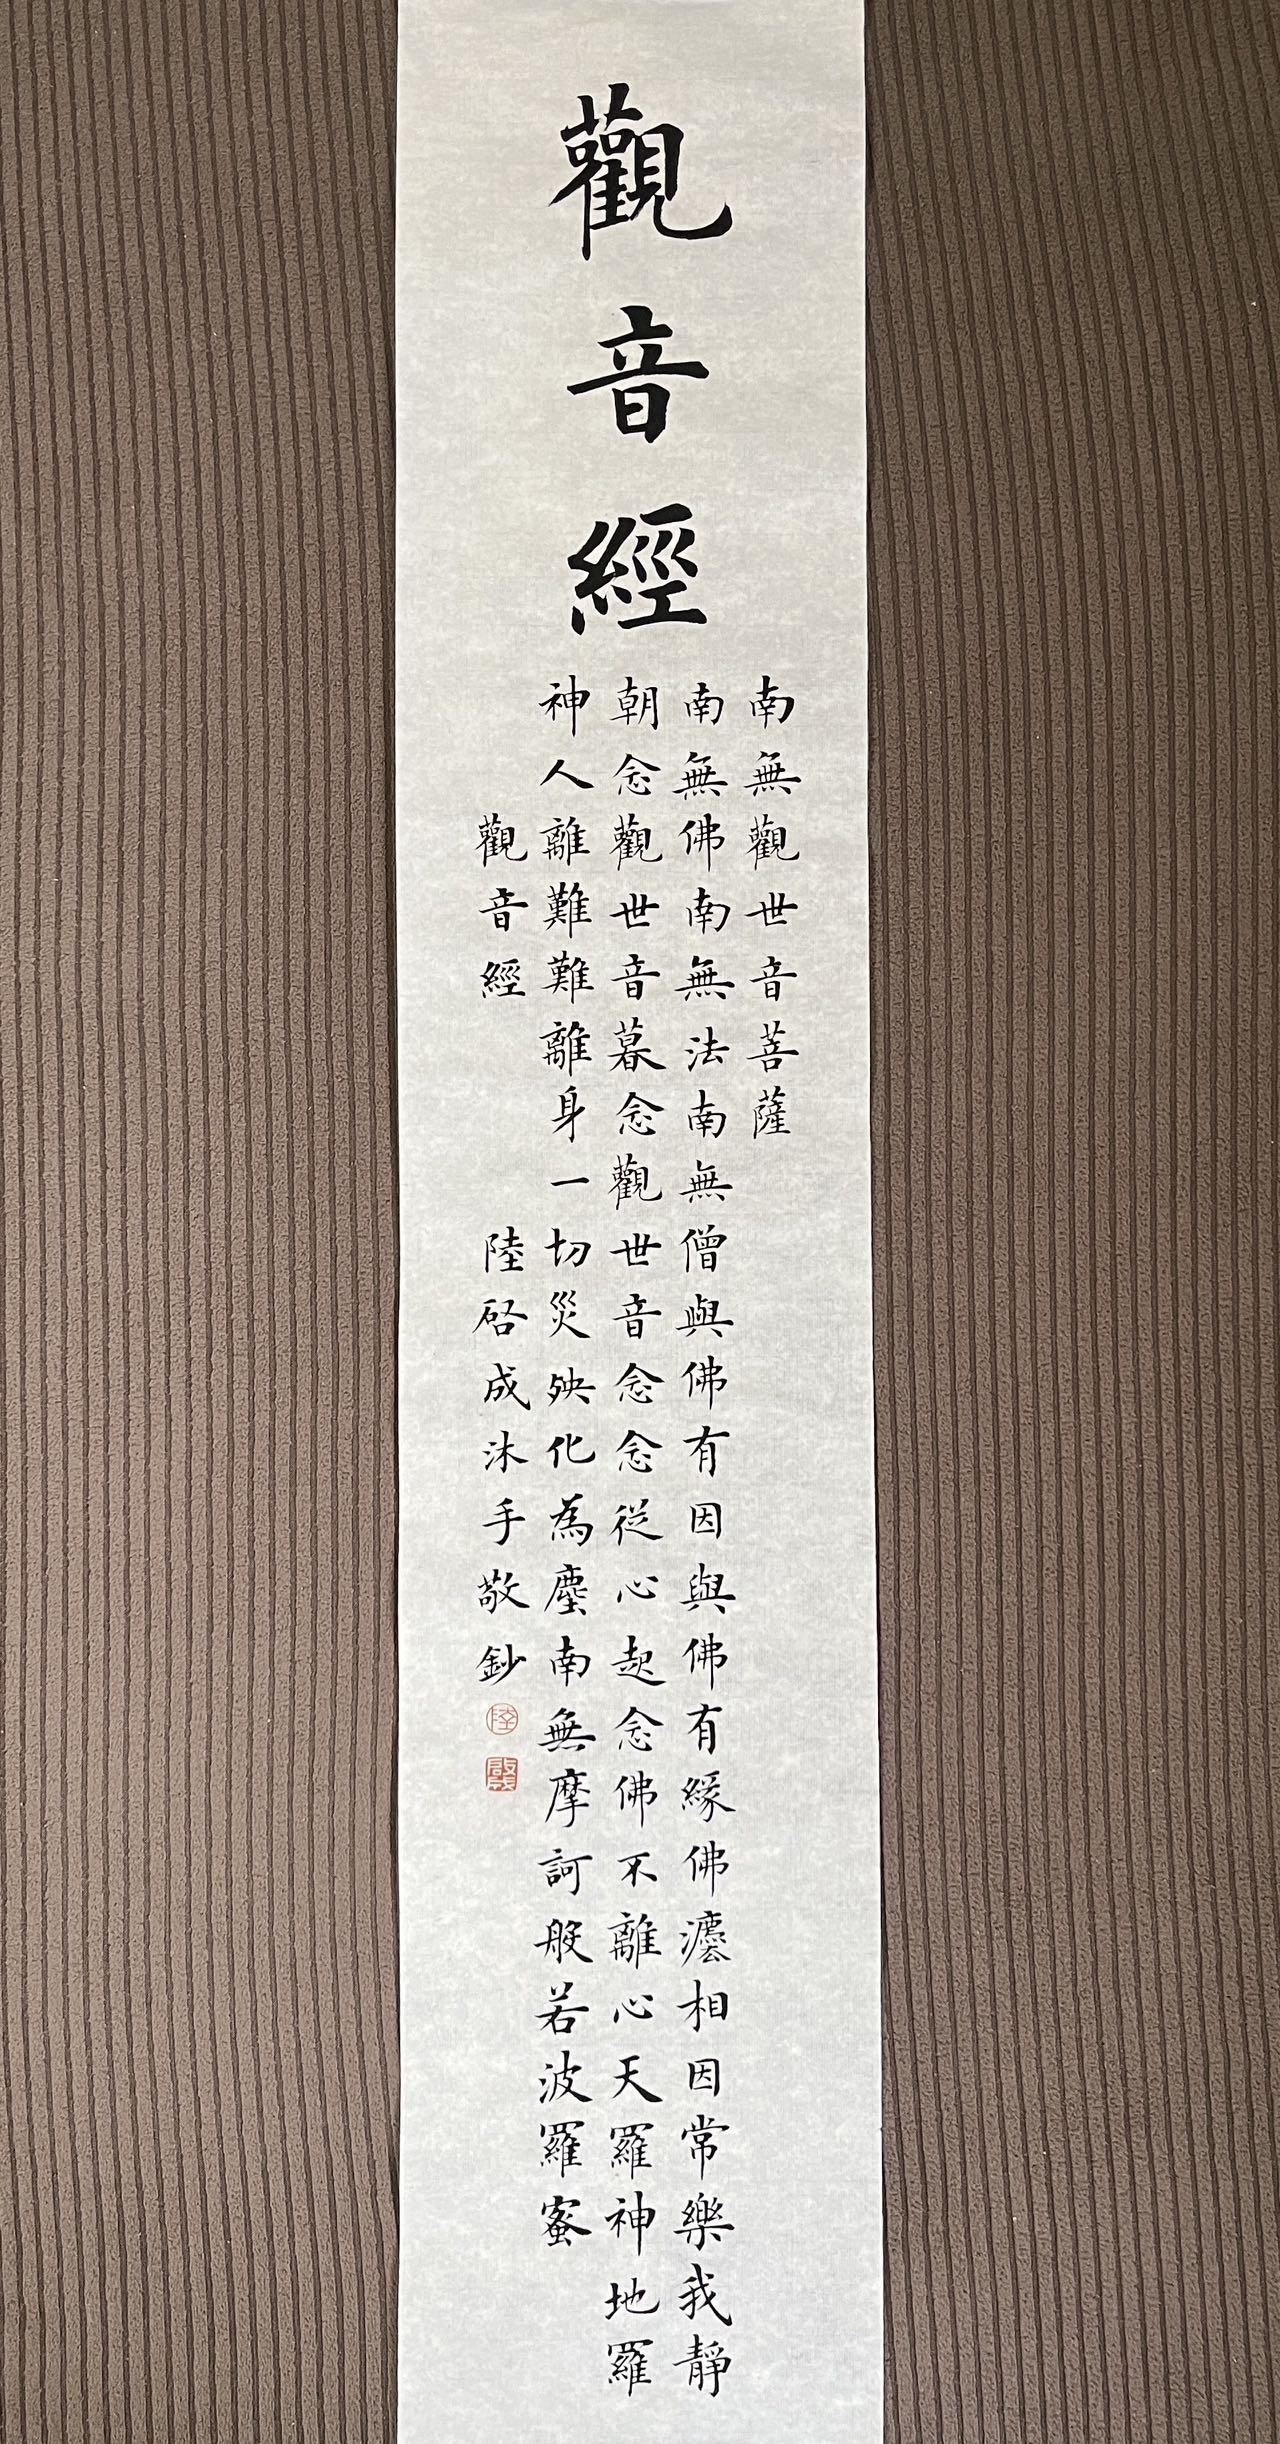 觀音經
南無觀世音菩薩
南無佛南無法南無僧與佛有因與佛有緣佛灋相因常樂我靜
朝念觀世音暮念觀世音念念從心起念佛不離心天羅神地羅
神人離難難離身一切災殃化為塵南無摩訶般若波羅蜜
觀音經
陸啓成沐手敬鈔
陸
啟成